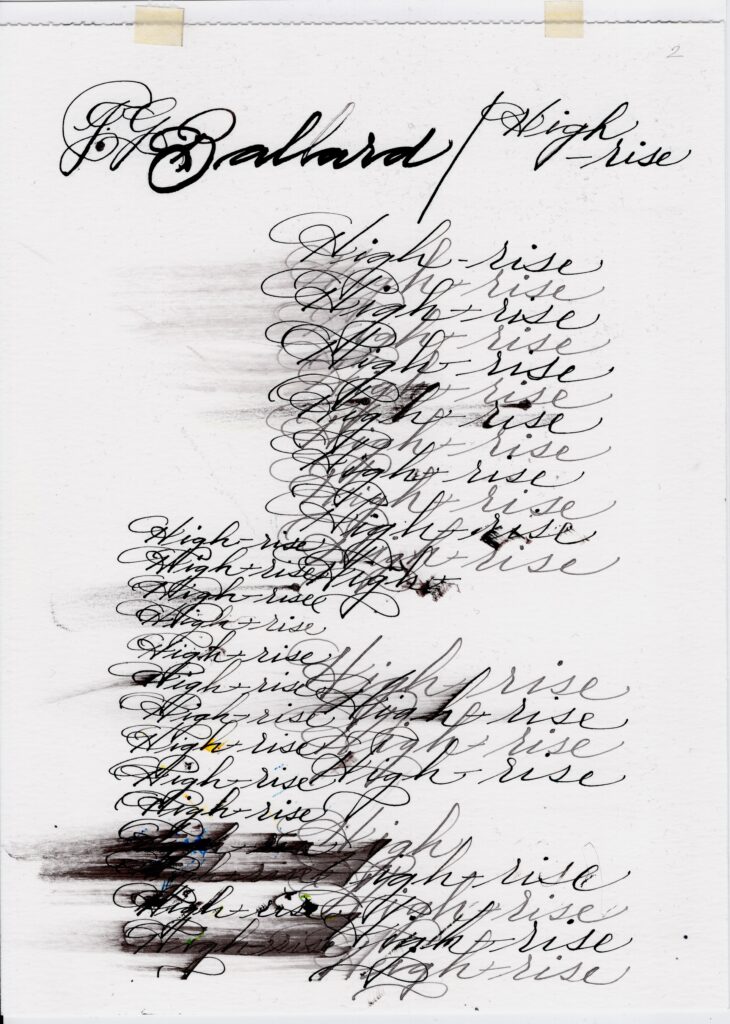 2
J.G. Ballard / High
-rise
High-rise
High-rise
High-rise
High-rise
High-rise
High-rise
High-rise
High-rise
High-rise
High-rise
High-rise
High-rise
High-rise
High-rise
High-rise High-
High-rise
High-rise
High-rise
High-rise High-rise
High-rise High-rise
High-rise High-rise
High-rise High-rise
High-rise
High
High-rise
High-rise High-rise
High-rise High-rise
High-rise